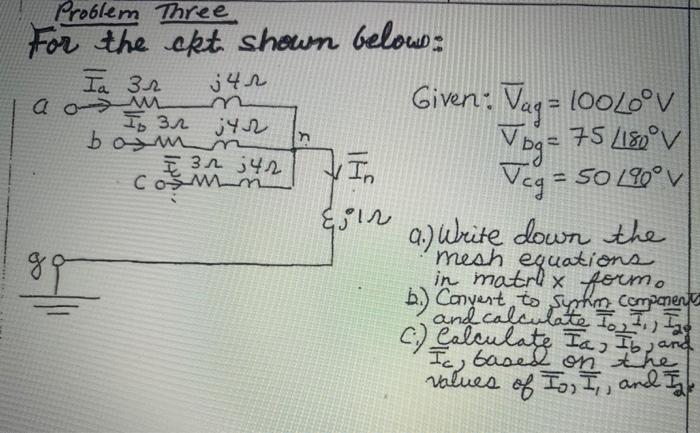 Problem Three
For the ckt. shown below:
Ia 3Ω j4Ω
a
Ib 3Ω j4Ω
b
n
Ic 3Ω j4Ω
c
In
j1Ω
g
Given: V̅ag = 100∠0° V
V̅bg = 75∠180° V
V̅cg = 50∠90° V
a.) Write down the
mesh equations
in matrix form.
b.) Convert to symm components
and calculate I̅0, I̅1, I̅2.
C.) Calculate I̅a, I̅b, and
I̅c, based on the
values of I̅0, I̅1, and I̅2.